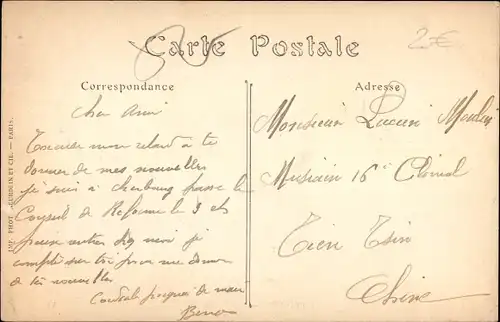 Carte Postale
2€
Correspondance
Adresse
Cher Ami
Excuse mon retard à te
donner de mes nouvelles
je suis à cherbourg passe le
Conseil de Reforme le 3 et
puise rentrer chez moi je
compte sur toi pour me donner
de tes nouvelles
Cordiale poignée de main
Monsieur Lucien
Musicien 16e Colonial
Tien Tsin
Chine
IMP. PHOT. GUERUIN ET CIE. — PARIS.